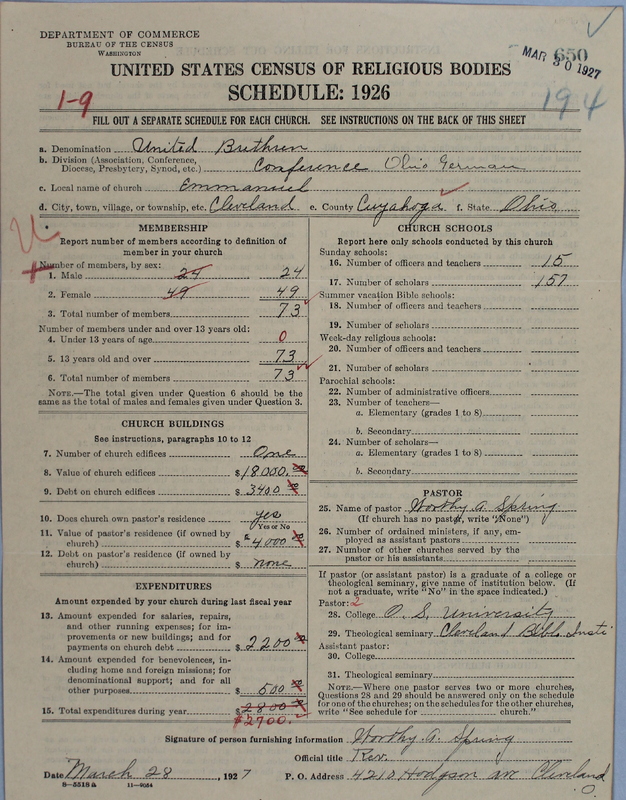 DEPARTMENT OF COMMERCE
BUREAU OF THE CENSUS
WASHINGTON
650
MAR 30 1927
UNITED STATES CENSUS OF RELIGIOUS BODIES
SCHEDULE: 1926
1-9
194
FILL OUT A SEPARATE SCHEDULE FOR EACH CHURCH. SEE INSTRUCTIONS ON THE BACK OF THIS SHEET
a. Denomination United Brethren
b. Division (Association, Conference,
Diocese, Presbytery, Synod, etc.) Conference Ohio German
c. Local name of church Emmanuel
d. City, town, village, or township, etc. Cleveland e. County Cuyahoga f. State Ohio
MEMBERSHIP
Report number of members according to definition of
member in your church
Number of members, by sex:
1. Male 24 24
2. Female 49 49
3. Total number of members 73
Number of members under and over 13 years old:
4. Under 13 years of age 0
5. 13 years old and over 73
6. Total number of members 73
NOTE.—The total given under Question 6 should be the
same as the total of males and females given under Question 3.
CHURCH BUILDINGS
See instructions, paragraphs 10 to 12
7. Number of church edifices One
8. Value of church edifices $18000.00
9. Debt on church edifices $3400 00
10. Does church own pastor's residence yes
Yes or No
11. Value of pastor's residence (if owned by
church) $4000 00
12. Debt on pastor's residence (if owned by
church) $none
EXPENDITURES
Amount expended by your church during last fiscal year
13. Amount expended for salaries, repairs,
and other running expenses; for im-
provements or new buildings; and for
payments on church debt $2200 00
14. Amount expended for benevolences, in-
cluding home and foreign missions; for
denominational support; and for all
other purposes $500 00
15. Total expenditures during year $2800 00
$2700.
CHURCH SCHOOLS
Report here only schools conducted by this church
Sunday schools:
16. Number of officers and teachers 15
17. Number of scholars 157
Summer vacation Bible schools:
18. Number of officers and teachers
19. Number of scholars
Week-day religious schools:
20. Number of officers and teachers
21. Number of scholars
Parochial schools:
22. Number of administrative officers
23. Number of teachers—
a. Elementary (grades 1 to 8)
b. Secondary
24. Number of scholars—
a. Elementary (grades 1 to 8)
b. Secondary
PASTOR
25. Name of pastor Worthy A Spring
(If church has no pastor, write "None")
26. Number of ordained ministers, if any, em-
ployed as assistant pastors
27. Number of other churches served by the
pastor or his assistants
If pastor (or assistant pastor) is a graduate of a college or
theological seminary, give name of institution below. (If
not a graduate, write "No" in the space indicated.)
Pastor: 2
28. College O. S. University
29. Theological seminary Cleveland Bible Insti
Assistant pastor:
30. College
31. Theological seminary
NOTE.—Where one pastor serves two or more churches,
Questions 28 and 29 should be answered only on the schedule
for one of the churches; on the schedules for the other churches,
write "See schedule for church."
Signature of person furnishing information Worthy. A. Spring
Official title Rev.
Date March 28, 1927 P. O. Address 4210 Hodgson ave Cleveland
O.
8-5518a 11-9054